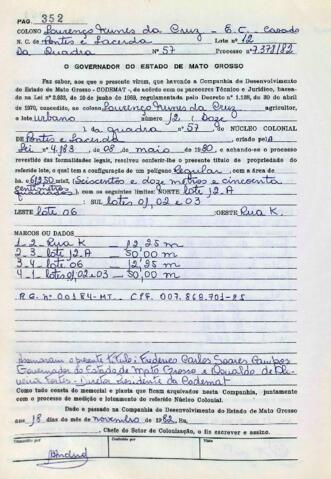 PAG. 352
COLONO Lourenço Nunes da Cruz - E.C. casado
N. C. de Pontes e Lacerda Lote nº 12
Da Quadra Nº 57 Processo nº 7.378/82
O GOVERNADOR DO ESTADO DE MATO GROSSO
Faz saber, aos que o presente virem, que havendo a Companhia de Desenvolvimento
do Estado de Mato Grosso - CODEMAT -, de acordo com os pareceres Técnico e Jurídico, basea-
do na Lei nº 2.933, de 10 de junho de 1969, regulamentada pelo Decreto nº 1.138, de 20 de abril
de 1970, concedido, ao colono Lourenço Nunes da Cruz agricultor,
o lote urbano número 12 | Doze
da quadra nº 57 do NÚCLEO COLONIAL
DE Pontes e Lacerda, criado pela
Lei nº 4.183, de 08 de maio de 1980, e achando-se o processo
revestido das formalidades legais, resolveu conferir-lhe o presente título de propriedade do
referido lote, o qual tem a configuração de um polígono Regular, com a área de
ha. 612,50 mts2, (Seiscentos e doze metros e cincoenta
centímetros quadrados), com os seguintes limites: NORTE lote 12.A
: SUL lotes 01, 02 e 03
LESTE lote 06 :OESTE Rua K.
MARCOS OU DADOS
1 - 2 - Rua K — 12,25 m
2 - 3 - lote 12.A — 50,00 m
3 - 4 - lote 06 — 12,25 m
4 - 1 - lotes 01,02 e 03 — 50,00 m
R.G. nº 00184-MT. CPF. 007.868.701-25
Assinaram o presente título: Frederico Carlos Soares Campos
Governador do Estado de Mato Grosso e Osvaldo de Oli-
veira Fortes - Diretor Presidente da Codemat
Como tudo consta do memorial e planta que ficam arquivados nesta Companhia, juntamente
com o processo de medição e loteamento do referido Núcleo Colonial.
Dado e passado na Companhia de Desenvolvimento do Estado de Mato Grosso
aos 18 dias do mês de novembro de 1982. Eu
, Chefe do Setor de Colonização, o fiz escrever e assino.
Transcrito por Conferido por Visto